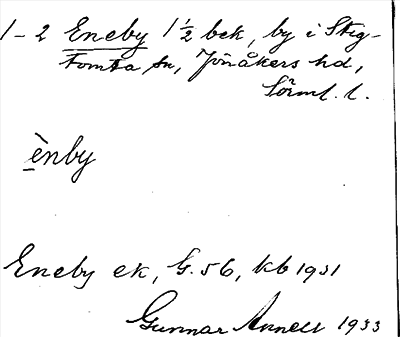 1-2 Eneby 1½ bek, by i Stig-
tomta sn, Jönåkers hd,
Sörml. l.
ènby
Eneby ek, G. 56, kb 1931
Gunnar Annell 1933